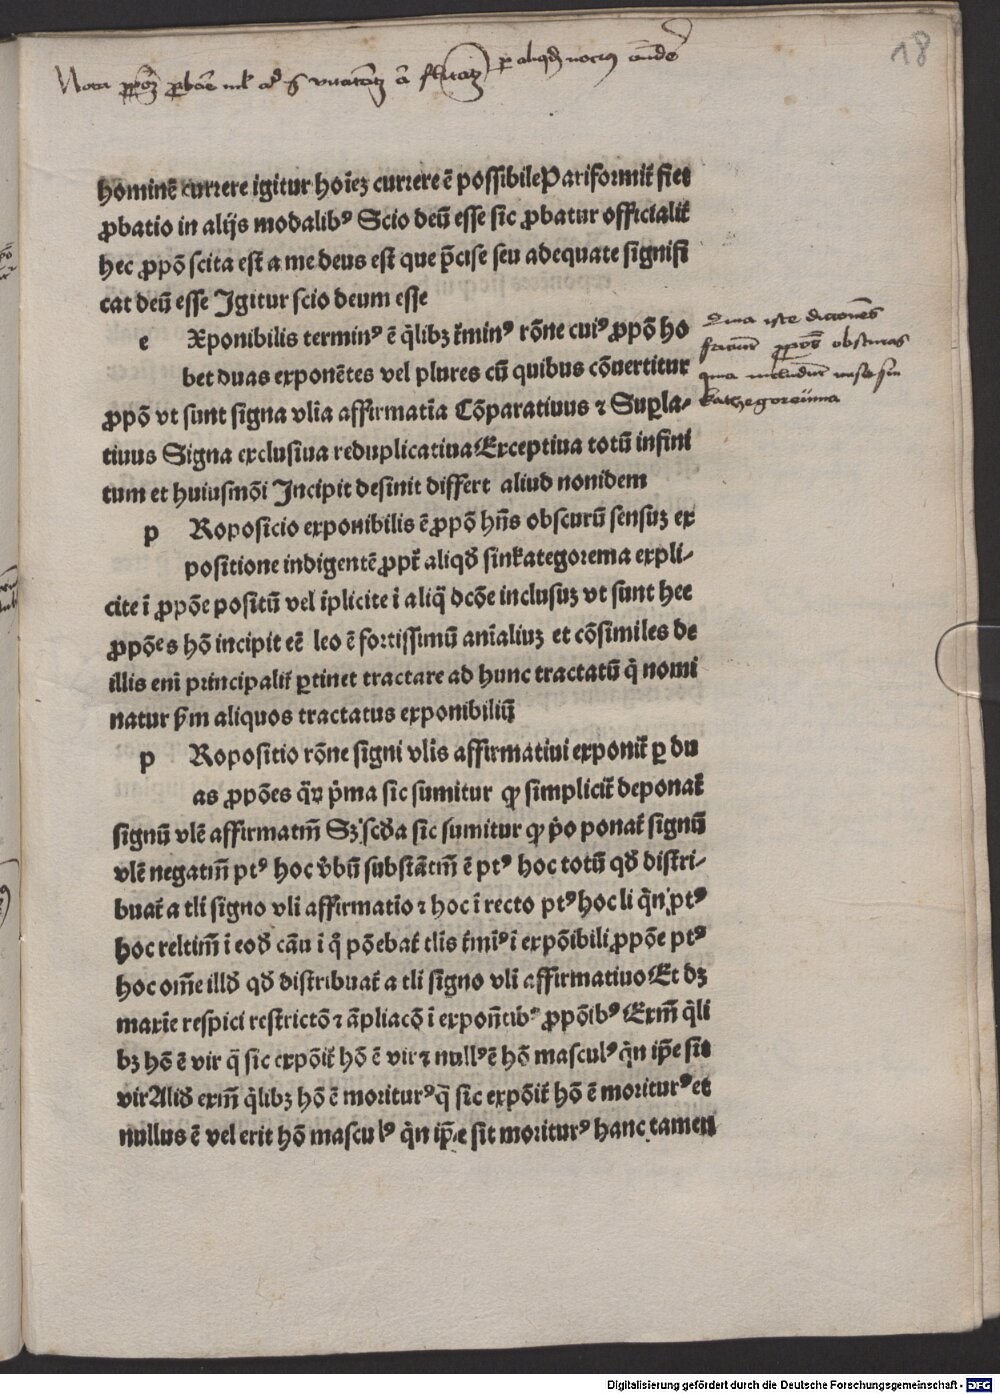 18
Nota
hominē currere igitur hoīez currere ē possibile Pariformit̃ fiet
ꝓbatio in alijs modalibꝰ Scio deū esse sic ꝓbatur officialit̃
hec ꝓpō scita est a me deus est que p̄cise seu adequate signifi
cat deū esse Igitur scio deum esse
e Xponibilis terminꝰ ē q̄libꝫ t̃minꝰ rōne cuiꝰ ꝓpō ho
bet duas exponētes vel plures cū quibus cōuertitur
ꝓpō vt sunt signa vlia affirmatīa Cōparatiuus ⁊ Suꝑla⸗
tiuus Signa exclusiua reduplicatiua Exceptiua totū infini
tum et huiusmōi Incipit desinit differt aliud nonidem
p Roposicio exponibilis ē ꝓpō hn̄s obscurū sensuꝫ ex
positione indigentē ꝓpt̃ aliqd̄ sinkategorema expli⸗
cite ī ꝓpōe positū vel īplicite ī aliq̄ dc̄ōe inclusuꝫ vt sunt hee
ꝓpōes hō incipit eē leo ē fortissimū anīaliuꝫ et cōsimiles de
illis enī principalit̃ ꝑtinet tractare ad hunc tractatū q̇ nomi
natur ẜm aliquos tractatus exponibiliū
p Ropositio rōne signi vlis affirmatiui exponit̃ ꝑ du
as ꝓpōes q̄ꝝ p̄ma sic sumitur ꝙ simplicit̃ deponat̃
signū vlē affirmatm̄ Sꝫ scd̄a sic sumitur ꝙ p̄o ponat̃ signū
vlē negatm̄ ptꝰ hoc v̄bū substātm̄ ē ptꝰ hoc totū qd̄ distri⸗
buat̃ a tli signo vli affirmatio ⁊ hoc ī recto ptꝰ hoc li q̄n ptꝰ
hoc reltim̄ ī eod̄ cāu ī q̄ pōebat̃ tlis t̃miꝰ ī expōibili ꝓpōe ptꝰ
hoc om̄e illd̄ qd̄ distribuat̃ a tli signo vli affirmatiuo Et dꝫ
maxīe respici restrictō ⁊ āpliacō ī expon̄tibꝰ ꝓpōibꝰ Exm̄ q̄li
bꝫ hō ē vir q̄ sic expōit̃ hō ē vir ⁊ nullꝰ ē hō masculꝰ q̄n ip̄e sit
vir Alid̄ exm̄ q̄libꝫ hō ē moriturꝰ q̄ sic expōit̃ hō ē moriturꝰ et
nullus ē vel erit hō masculꝰ q̄n ip̄e sit moriturꝰ hanc tamen
Quia iste dictiones
faciunt ꝓpōes obscuras
quia includunt
kathegoreuma
Digitalisierung gefördert durch die Deutsche Forschungsgemeinschaft - DFG